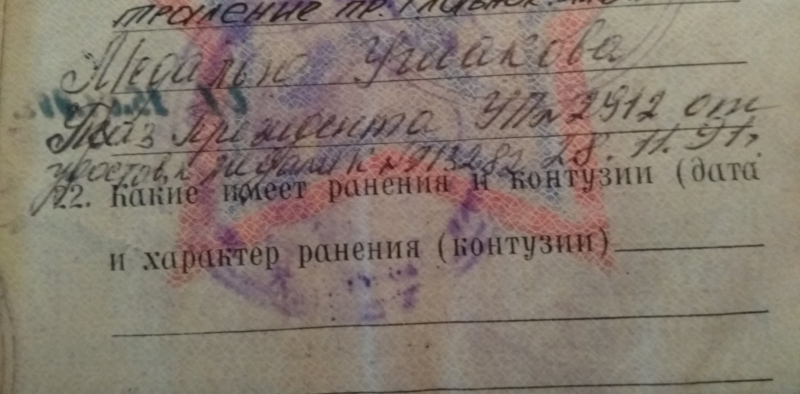 траление
Медалью Ушакова
Указ президента УП № 2912 от
удостов. к медали № 28. 11. 91 г.
22. Какие имеет ранения и контузии (дата
и характер ранения (контузии)